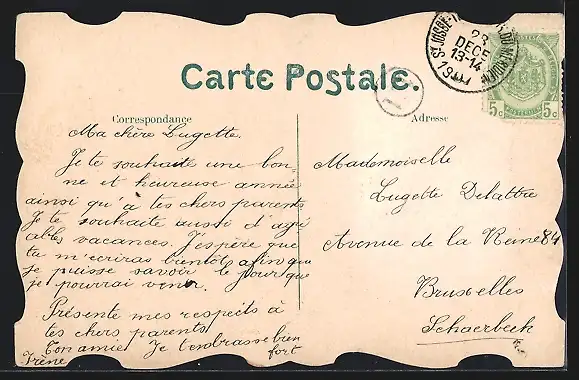 Carte Postale.
Correspondance
Ma chère Lugette.
Je te souhaite une bon
ne et heureuse année
ainsi qu'à tes chers parents
Je te souhaite aussi d'agré
ables vacances. J'espère que
tu m'écriras bientôt afin que
je puisse savoir le jour que
je pourrai venir.
Présente mes respects à
tes chers parents
Ton amie Je t'embrasse bien
fort
Irène
Adresse
Mademoiselle
Lugette Delattre
Avenue de la Reine 84
Bruxelles
Schaerbeek
23
DECE
13-14
5c 5c